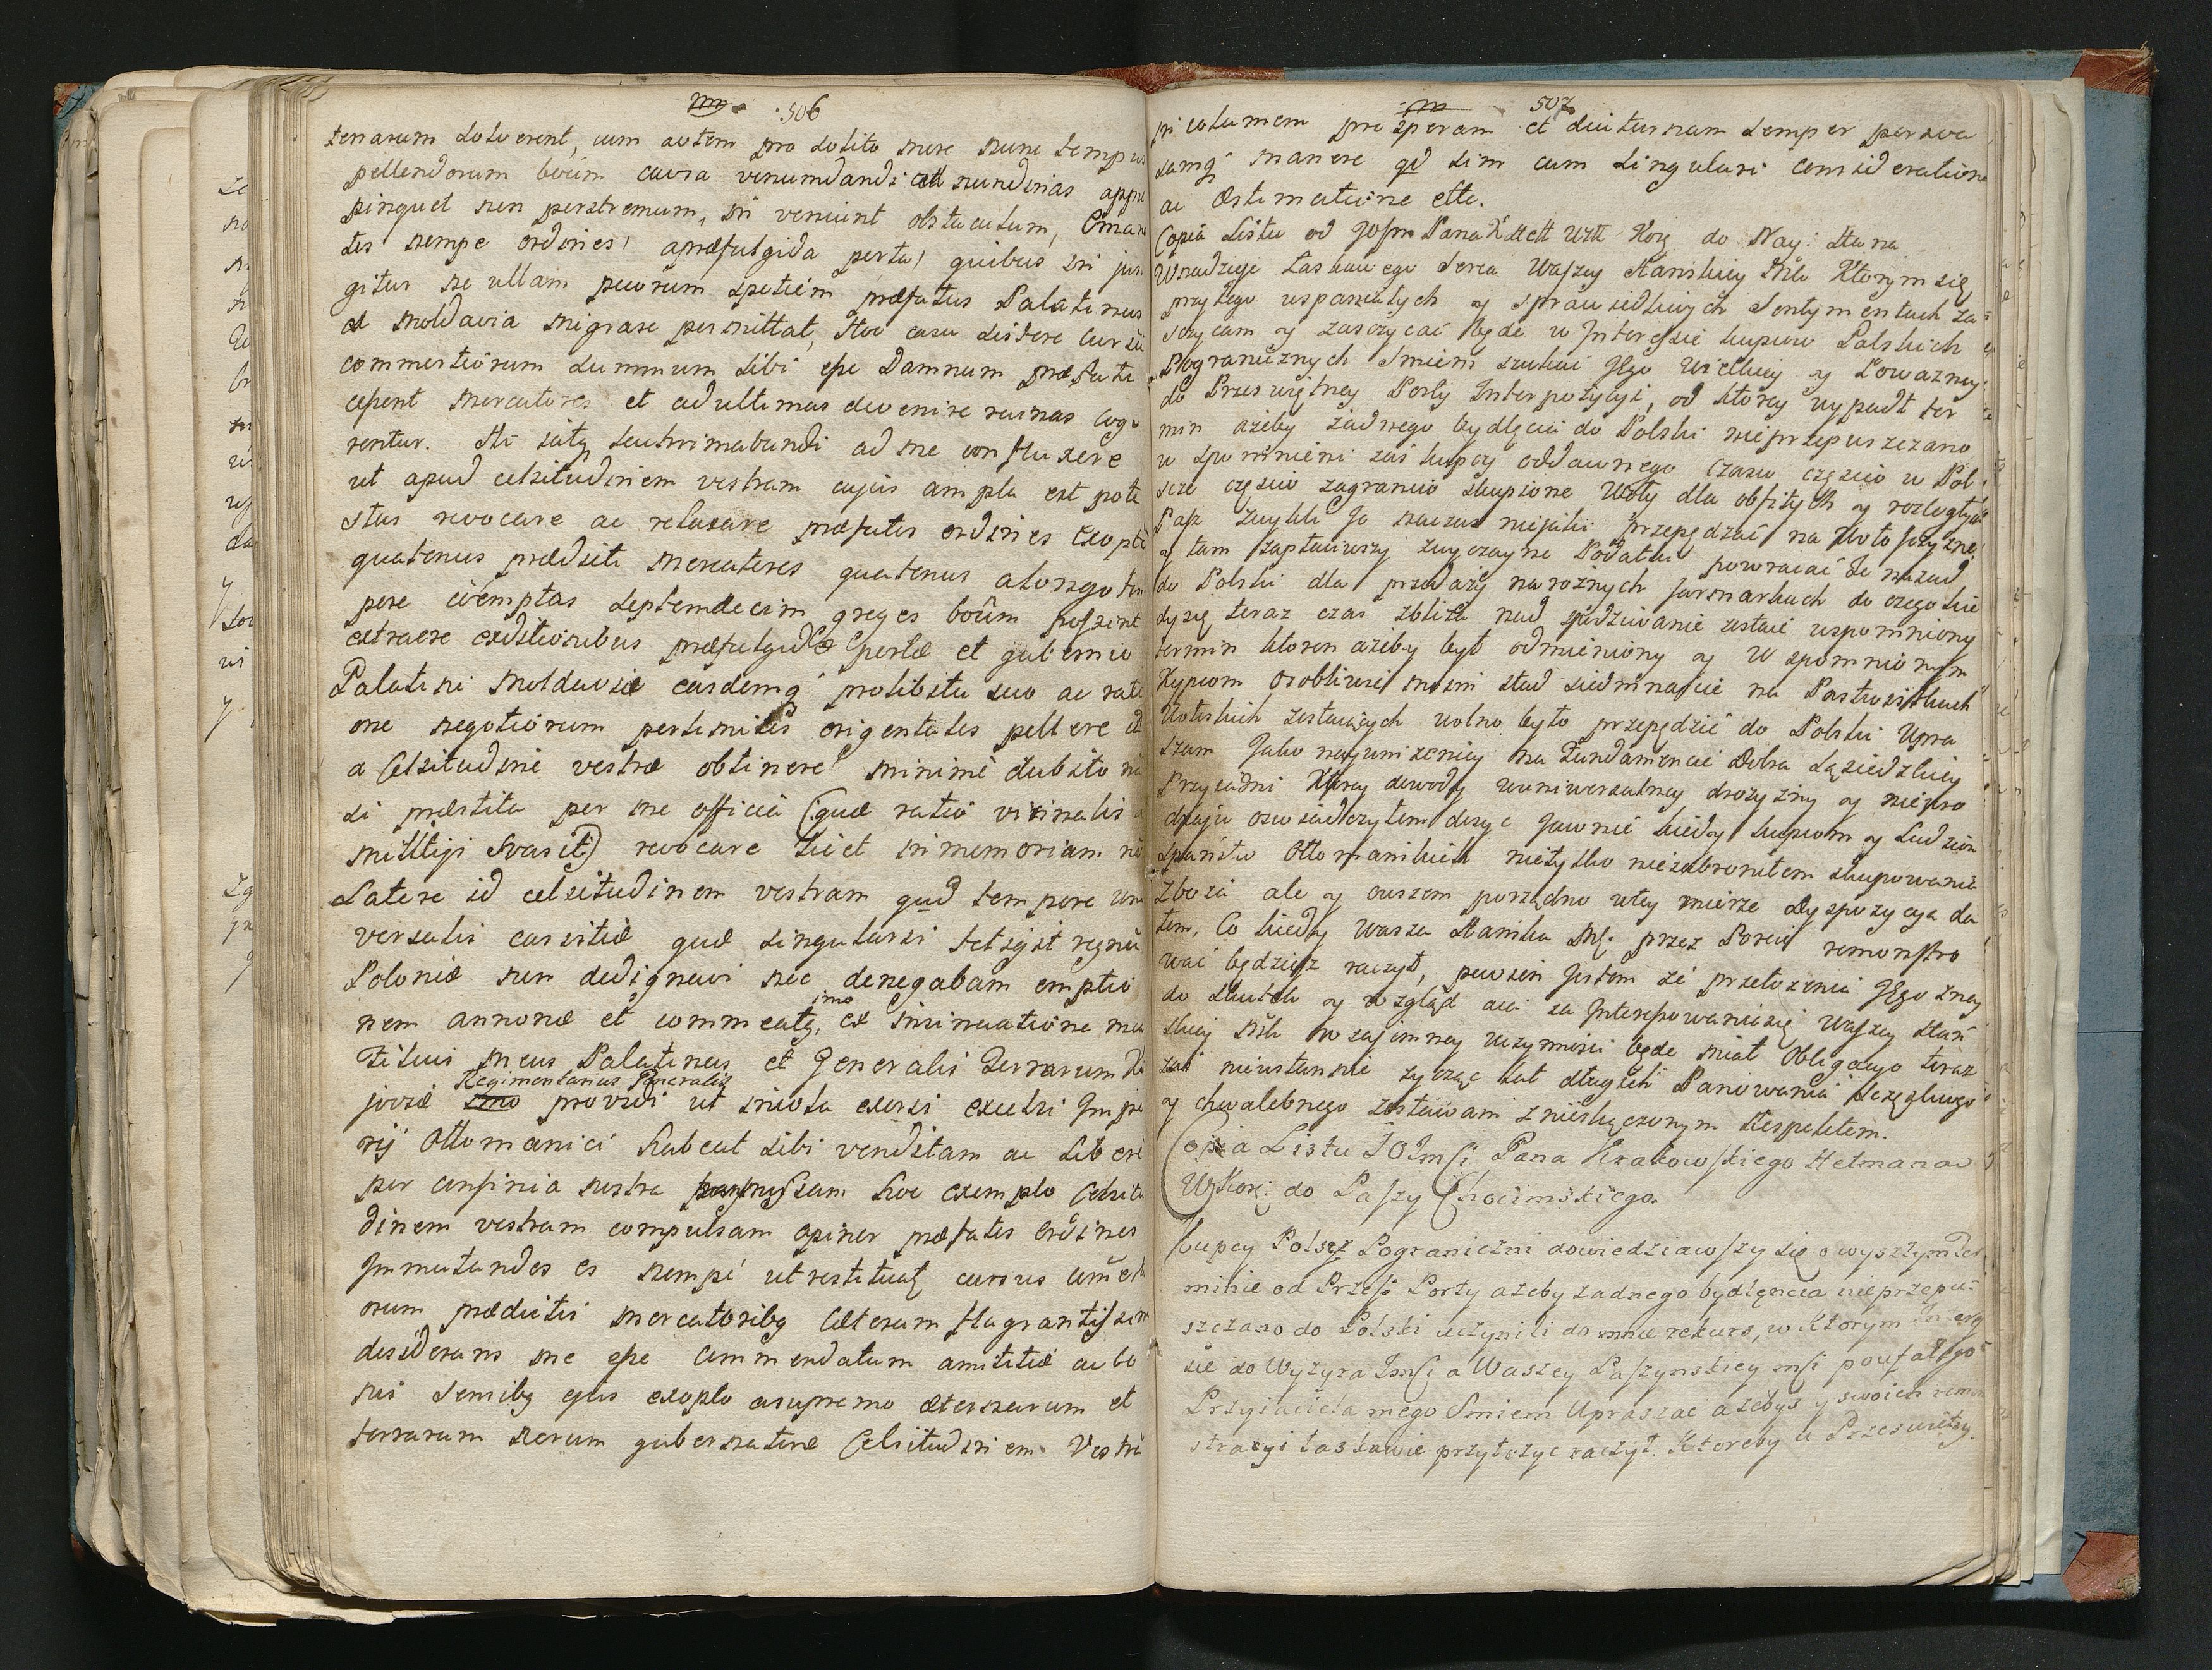 506
terrarum solverent, cum autem pro solito more nunc tempus
pellendorum boum causa venumdandi ad nundinas appro
pinquet non perstremum, in veniunt obstaculum, Eman
tis nempe ordines, a præfulgida porta, quibus in jun
gitur ne ullam pecorum spetiem præfatus Palatinus
et Moldavia migrare permittat, Hoc casu sistere cursu
commertiorum summum sibi esse Damnum præfati
cepent mercatores et ad ultimas devenire ruinas cogo
rentur. Hi itaq lachrimabundi ad me confluxere
ut apud celsitudinem vestram cujus ampla est pote
stas revocare ac relaxare præfatis ordines exopti
quatenus prædicti mercatores quatenus a longo tem
pore coemptas septemdecim greges boum possint
extraere exditionibus præfulgidæ portæ et gubernio
Palatini Moldaviæ easdemq prolibitu suo ac rati
one negotiorum pertinentis origentales pellere id
a Celsitudine vestra obtinere minimè dubito ni
si præstita per me officia (quæ ratio vicinalis
mittiji svasit) revocare liet in memoriam no
Latere id celsitudinem vestram quod tempore uni
versalis caritiæ quæ singulari tetigit regnu
Poloniæ non dedignavi nec denegabam emptio
nem annonæ et commeatq, imo ex insinuatione mea
Filius meus Palatinus et Generalis Terrarum Ki
joviæ Regimentarius Generalis providi ut invota exteri Impe
rij Ottomanici habeat sibi venditam ac liberè
per confinia nostra permissam hoc exemplo Celsitu
dinem vestram compulsam opinor præfatis ordines
Immutandos es nempe ut restituatq cursus comerti
orum prædictis mercatoribq Cæterum flagrantissim
desiderans me esse commendatum amititiæ ac bo
nis sensibq ejus exopto a supremo æternarum et
terrarum rerum gubernatore Celsitudinem Vestra
507
in columem prosperam et diuturnam semper perseve
samq manere qd sim cum singulari consideratione
ac Æstimatione ette.
Copia Listu od Josm Pana K Hett WKo Korj do Nay: Hana
W nadzieje łaskawego serca Waszey Hanskiey Mśći Ktorym się
przytego wspaniałych y sprawiedliwych sentymentach za
szczycam y zaszczycać będe w Interessie kupcow Polskich
Pogranicznych Smiem szukać Jego Wielkiey y Poważney
do Przeswiętney Porty Interpozycyi, od ktorey wypadł ter
min ażeby żadnego bydlęcia do Polski nieprzepuszczano
w spomnieni zaś kupcy oddawnego czasu częscio w Pol
szcze częscio zagranico skupione Woły dla obfitych y rozległych
Pasz zwykli je naczas niejaki przepędzać na Wołoszczyznę
y tam zapłaciwszy zwyczayne Podatki powracać Je nazad
do Polski dla przedaży na rożnych Jarmarkach do czego kie
dysię teraz czas zbliża nad spodziwanie zostaie wspomniony
termin ktoren ażeby był odmieniony y w spomnionym
Kupcom osobliwie mnni stad siedmnaście na Pastwiskach
Wołoskich zostaiących wolno było przepędzić do Polski Upra
szam Jako nayuniżeniey na Fundamencie Dobra Sąsiedzkiey
Przyiazni Ktorey dowody wuniwersalney drożyzny y nieuro
dzaju oswiadczyłem dosyć Jawnie kiedy kupcom y Ludziom
zpaństw Ottomanskich nietylko niezabroniłem skupowania
zboża ale y owszem porządno wtey mierze dyspozycyą da
łem, Co kiedy Wasza Hanska Mść przez Porcie remonstro
wać będziesz raczył, pewien Jestem że przełożenia Jego znay
do skutek y wzgląd a ia za Interpowaniesię Waszey Han
skiej Mśći wzajemney uczynności będe miał Obligacyo teraz
zaś nieustannie zycząc lat długich Panowania szczęśliwego
y chwalebnego zostawam znieskączonym Respektem.
Copia Listu JOJmśći Pana Krakowskiego Hetmana
WKorj: do Paszy Chocimskiego.
Kupcy Polscy Pograniczni dowiedziawszy się o wyszłym Ter
minie od Przesś Porty ażeby żadnego bydlęncia nieprzepu-
szczano do Polski uczynili do mnie rekurs, w Ktorym
sie do Wyżyra Jmśći a Waszey Paszynskiey mśći poufałego
Przyiaciela mego Smiem Upraszać ażebyś y swoich remon
stracyi łaskawie przyłożyć raczył. Ktoreby u Przeswiętey.